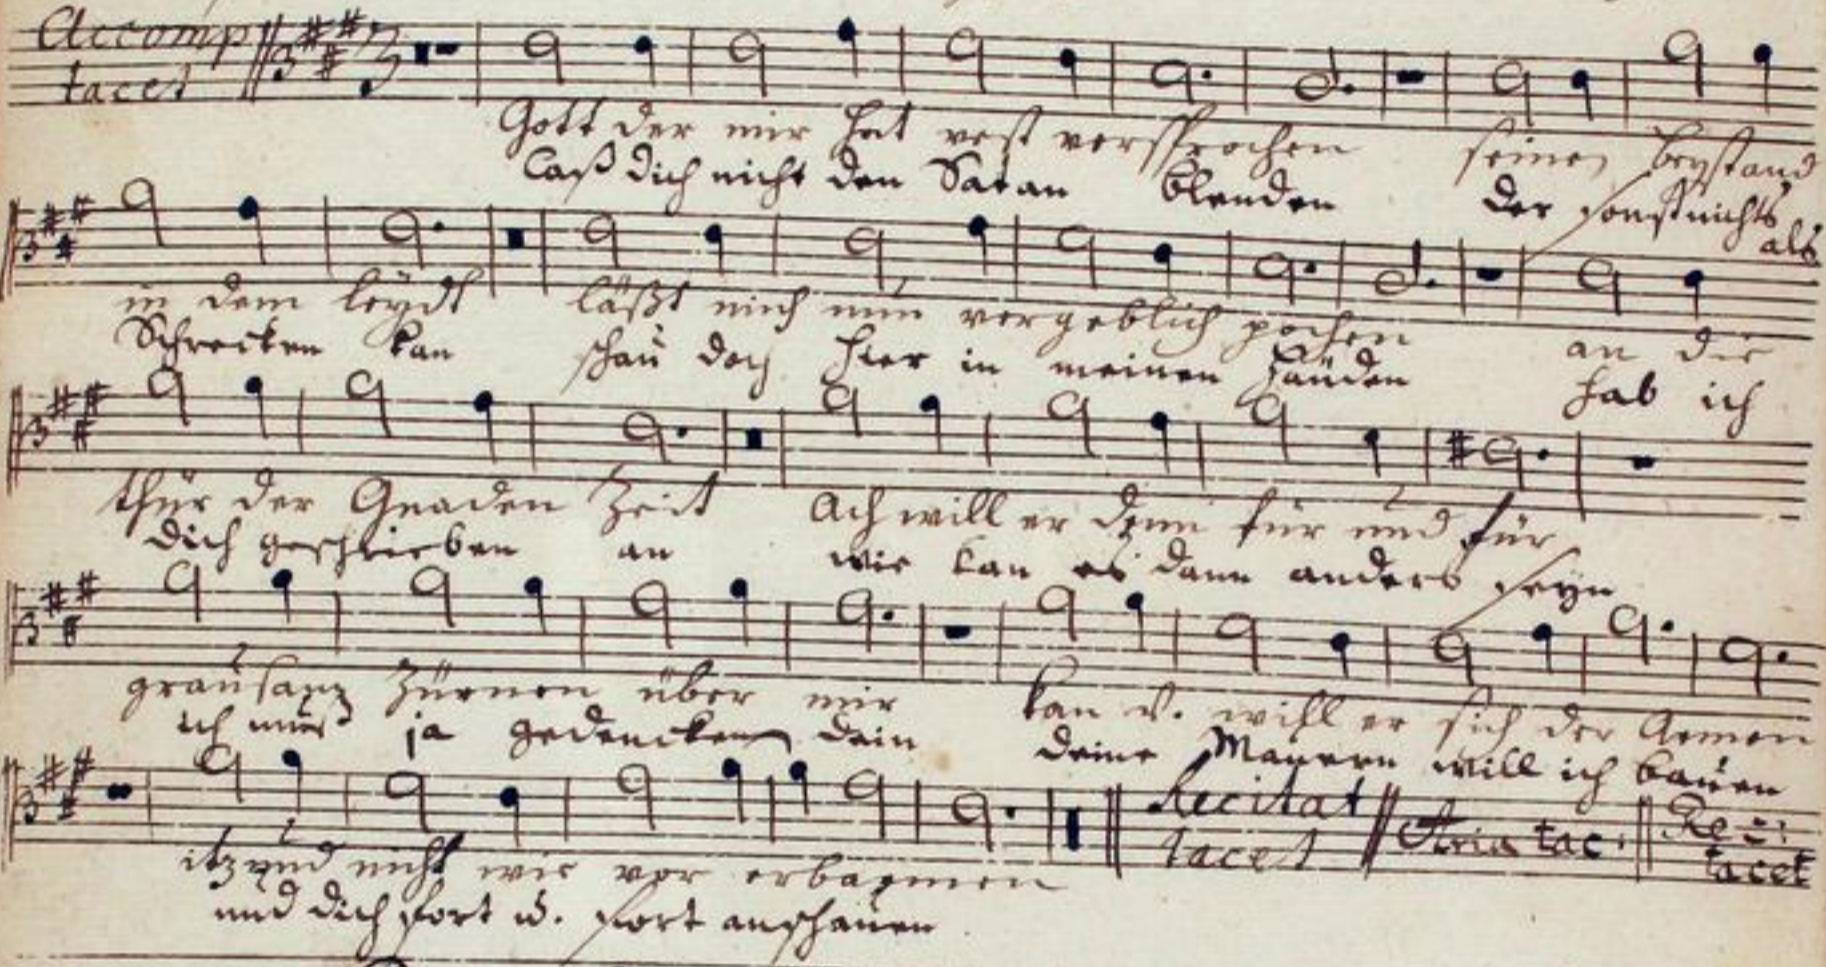 Accomp
tacet
Gott der mir hat vest versprochen seinen beystand
Laß dich nicht den Satan blenden der sonst nichts als
in dem leydt läßt mich nun vergeblich pochen an die
Schrecken kan schau doch hier in meinen Händen hab ich
thür der Gnaden Zeit Ach will er denn für und für
dich geschrieben an wie kan es dann anders seyn
grausam zürnen über mir kan v. will er sich der Armen
ich muß ja gedencken dein deine Mauern will ich bauen
Recitat
tacet
Aria tac:
Rec:
tacet
itzund nicht wie vor erbarmen
und dich fort v. fort anschauen